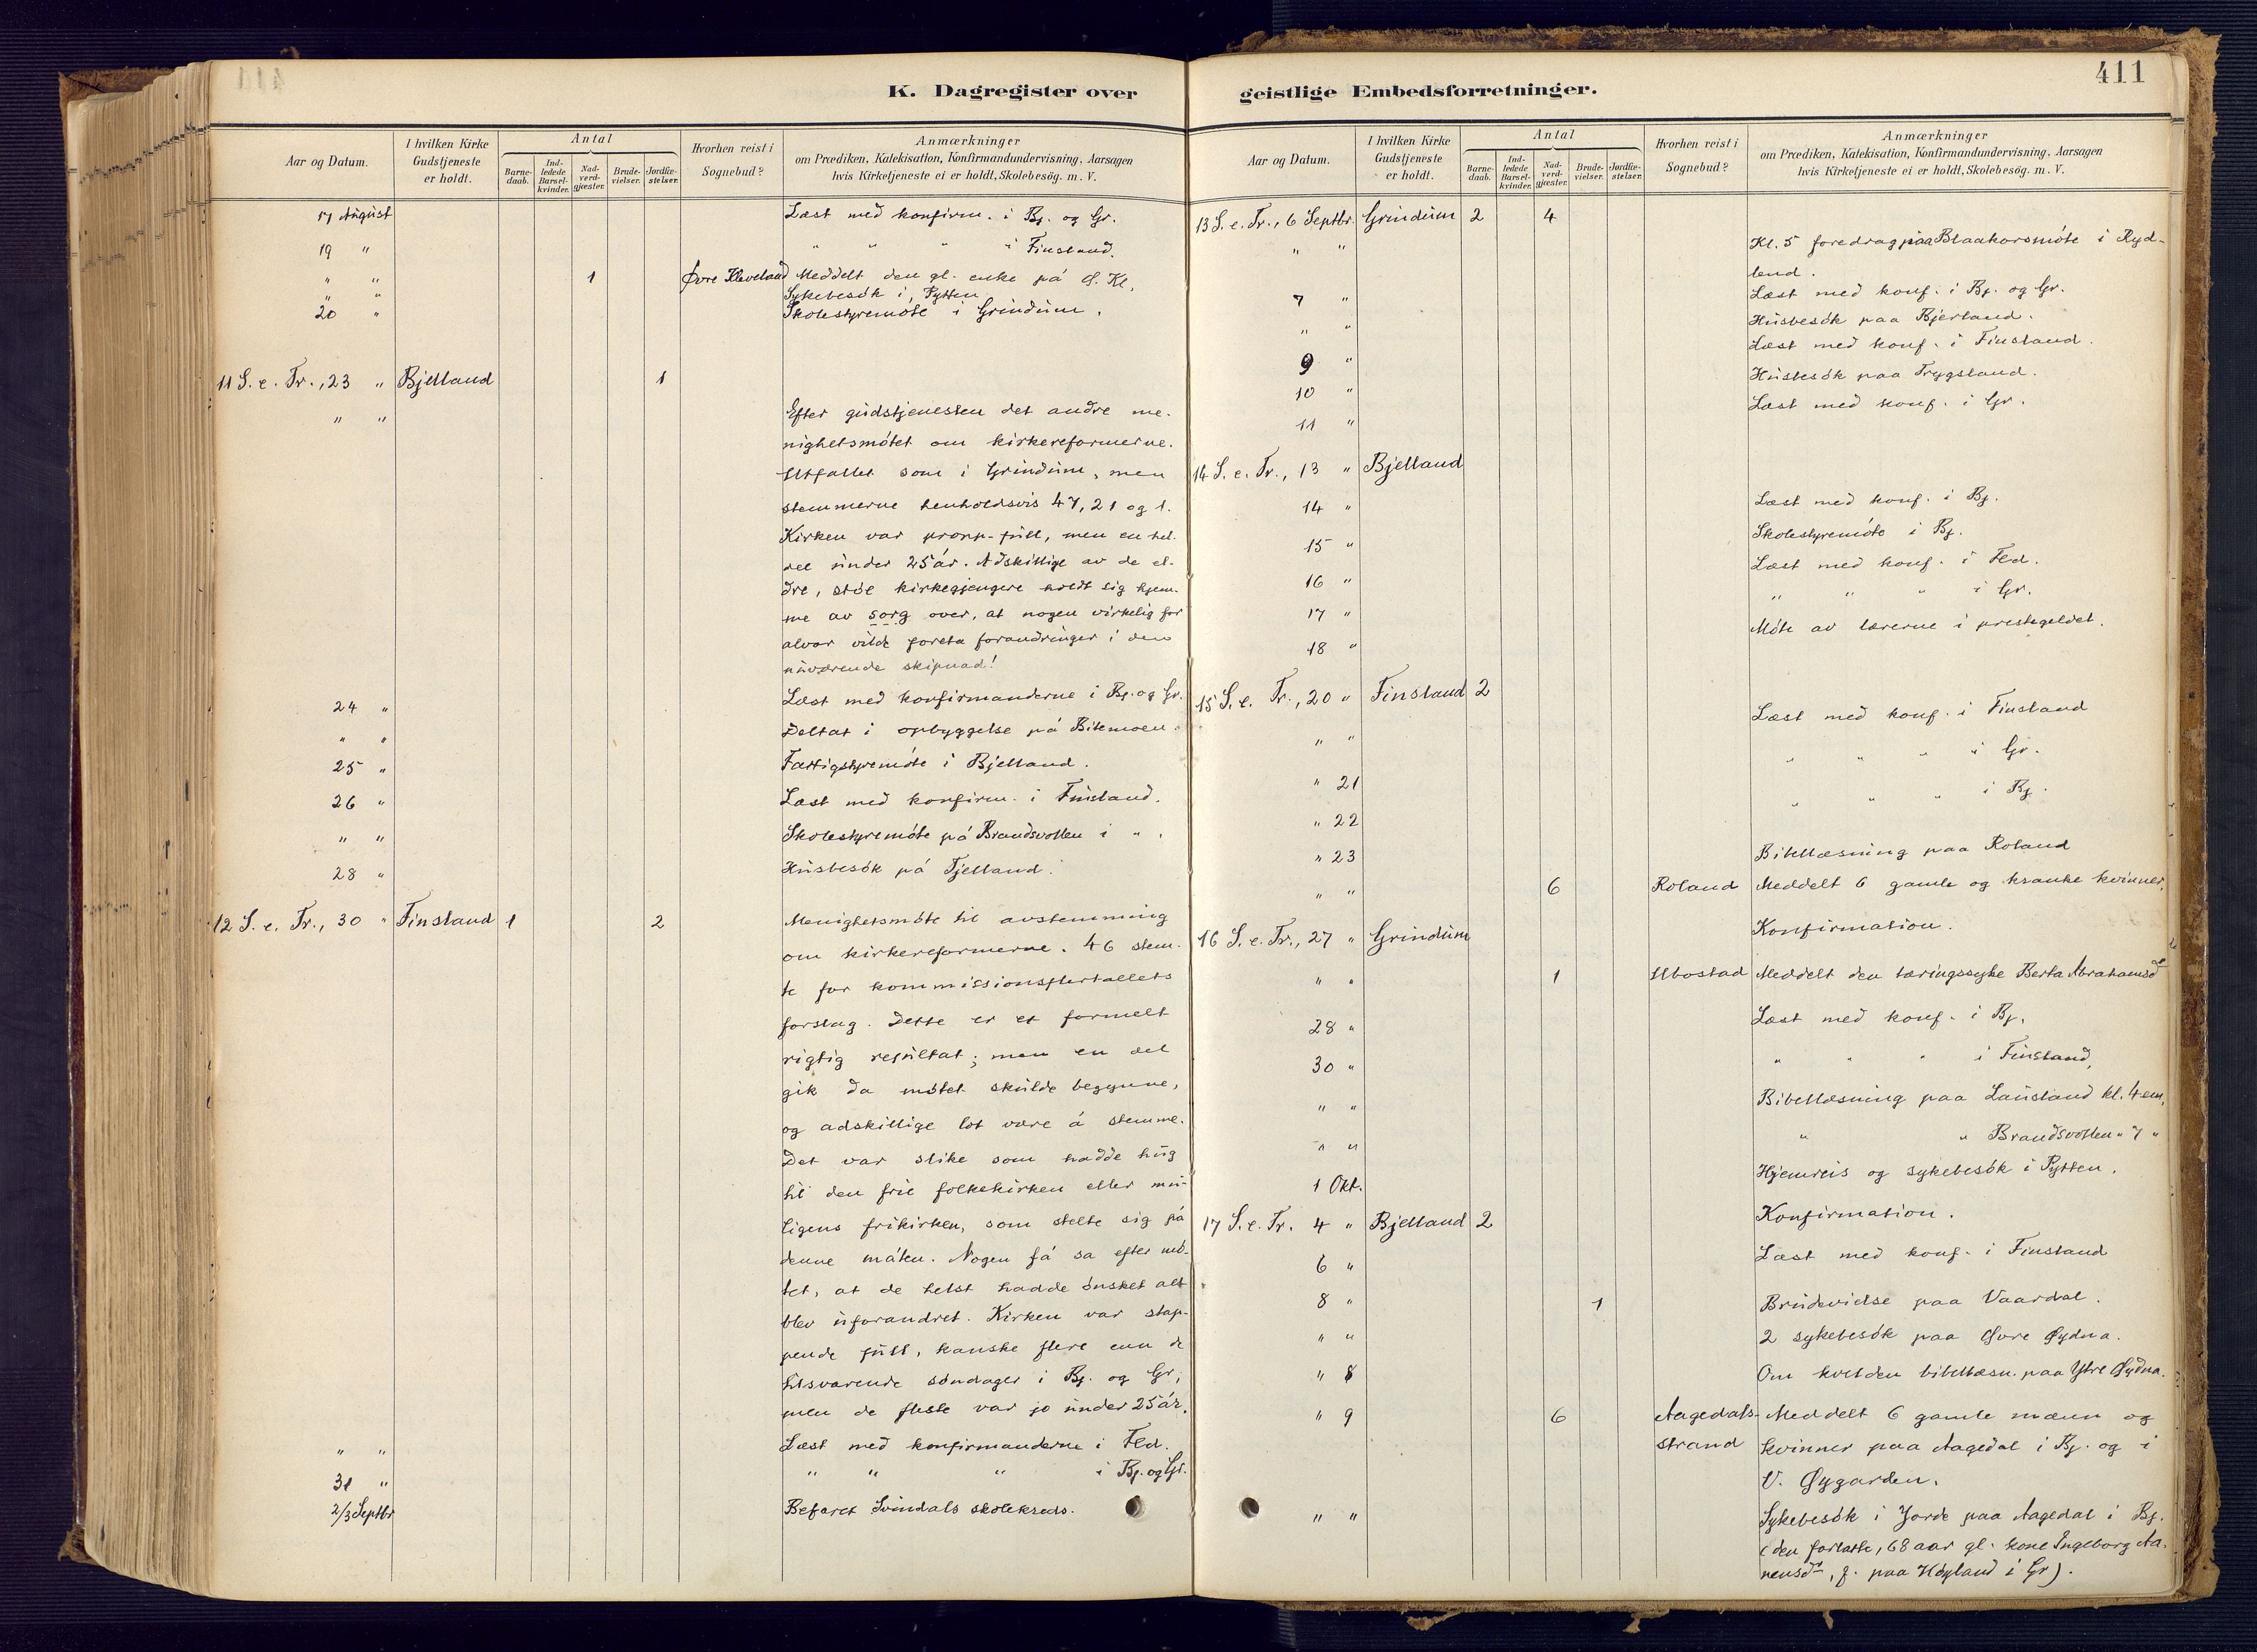 K. Dagregister over
Aar og Datum.
I hvilken Kirke Gudstjeneste er holdt.
Antal
Barnedaab.
Indledede Barselkvinder.
Nadverdgjæster.
Brudevielser.
Jordfæstelser.
Hvorhen reist i Sognebud?
Anmærkninger
om Prædiken, Katekisation, Konfirmandundervisning, Aarsagen
hvis Kirketjeneste ei er holdt, Skolebesøg. m. V.
17 August Læst med konfirm. i Bj. og Gr.
19 " " " " i Finsland.
" " 1 Øvre Kleveland Meddelt den gl. enke på Ø. Kl.
" " Sykebesøk i Pytten
20 " Skolestyremøte i Grindum.
11 S. e. Tr., 23 " Bjelland 1
" " Efter gudstjenesten det andre me-
nighetsmøtet om kirkereformerne.
Utfallet som i Grindum, men
stemmerne henholdsvis 47, 21 og 1.
Kirken var propp-full, men en hel
del under 25 år. Adskillige av de el-
dre, støe kirkegjengere holdt sig hjem-
me av sorg over, at nogen virkelig for
alvor vilde foreta forandringer i den
nuværende skipnad!
24 " Læst med konfirmanderne i Bj. og Gr.
" " Deltat i opbyggelse på Bilemoen.
25 " Fattigstyremøte i Bjelland.
26 " Læst med konfirm. i Finsland.
" " Skolestyremøte på Brandsvollen i " .
28 " Husbesøk på Fjelland.
12 S. e. Tr., 30 " Finsland 1 2 Menighetsmøte til avstemming
om kirkereformerne. 46 stem-
te for kommissionsflertallets
forslag. Dette er et formelt
rigtig resultat; men en del
gik da møtet skulde begynne,
og adskillige lot være å stemme.
Det var slike som hadde hug
til den frie folkekirken eller mu-
ligens frikirken, som stelte sig på
denne måten. Nogen få sa efter mø-
tet, at de helst hadde ønsket alt
blev uforandret. Kirken var stap-
pende full, kanske flere enn de
tilsvarende søndager i Bj. og Gr.;
men de fleste var jo under 25 år.
" " Læst med konfirmanderne i Fld.
31 " " " " i Bj. og Gr.
2/3 Septbr Befaret Svindals skolekreds.
411
geistlige Embedsforretninger.
Aar og Datum.
I hvilken Kirke Gudstjeneste er holdt.
Antal
Barnedaab.
Indledede Barselkvinder.
Nadverdgjæster.
Brudevielser.
Jordfæstelser.
Hvorhen reist i Sognebud?
Anmærkninger
om Prædiken, Katekisation, Konfirmandundervisning, Aarsagen
hvis Kirketjeneste ei er holdt, Skolebesög. m. V.
13 S. e. Tr., 6 Septbr. Grindum 2 4
" " Kl. 5 foredrag paa Blaakorsmøte i Ryd-
land.
7 " Læst med konf. i Bj. og Gr.
" " Husbesøk paa Bjerland.
9 " Læst med konf. i Finsland.
10 " Husbesøk paa Trygsland.
11 " Læst med konf. i Gr.
14 S. e. Tr., 13 " Bjelland
14 " Læst med konf. i Bj.
15 " Skolestyremøte i Bj.
16 " Læst med konf. i Fld.
17 " " " " i Gr.
18 " Møte av lærerne i prestegeldet.
15 S. e. Tr., 20 " Finsland 2
" " Læst med konf. i Finsland
" 21 " " " i Gr.
" 22 " " " i Bj.
" 23 Bibellæsning paa Roland
" " 6 Roland Meddelt 6 gamle og kranke kvinner.
16 S. e. Tr., 27 " Grindum Konfirmation.
" " 1 Ubostad Meddelt den tæringssyke Berta Abrahamsd
28 " Læst med konf. i Bj.
30 " " " " i Finsland,
" " Bibellæsning paa Lausland kl. 4 em.
" " " " Brandsvollen " 7 "
1 Okt. Hjemreis og sykebesøk i Pytten.
17 S. e. Tr. 4 " Bjelland 2 Konfirmation.
6 " Læst med konf. i Finsland
8 " 1 Brudevielse paa Vaardal.
" " 2 sykebesøk paa Øvre Øydna.
" 8 Om kvelden bibellæsn. paa Ytre Øydna.
" 9 6 Aagedals- Meddelt 6 gamle mænn og
strand kvinner paa Aagedal i Bj. og i
V. Øygarden.
" " Sykebesøk i Jorde paa Aagedal i Bj.
(den forlatte, 68 aar gl. kone Ingeborg Aa-
nensdtr, f. paa Høyland i Gr).